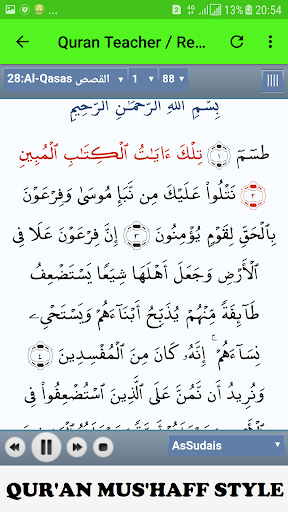 13% 20:54
Quran Teacher / Re...
28:Al-Qasas القصص 1 88
بِسْمِ اللَّهِ الرَّحْمَٰنِ الرَّحِيمِ
طسٓمٓ ۝١ تِلْكَ ءَايَٰتُ ٱلْكِتَٰبِ ٱلْمُبِينِ
۝٢ نَتْلُوا۟ عَلَيْكَ مِن نَّبَإِ مُوسَىٰ وَفِرْعَوْنَ
بِٱلْحَقِّ لِقَوْمٍ يُؤْمِنُونَ ۝٣ إِنَّ فِرْعَوْنَ عَلَا فِى
ٱلْأَرْضِ وَجَعَلَ أَهْلَهَا شِيَعًا يَسْتَضْعِفُ
طَآئِفَةً مِّنْهُمْ يُذَبِّحُ أَبْنَآءَهُمْ وَيَسْتَحْىِۦ
نِسَآءَهُمْ ۚ إِنَّهُۥ كَانَ مِنَ ٱلْمُفْسِدِينَ ۝٤
وَنُرِيدُ أَن نَّمُنَّ عَلَى ٱلَّذِينَ ٱسْتُضْعِفُوا۟ فِى
AsSudais
QUR'AN MUS'HAFF STYLE